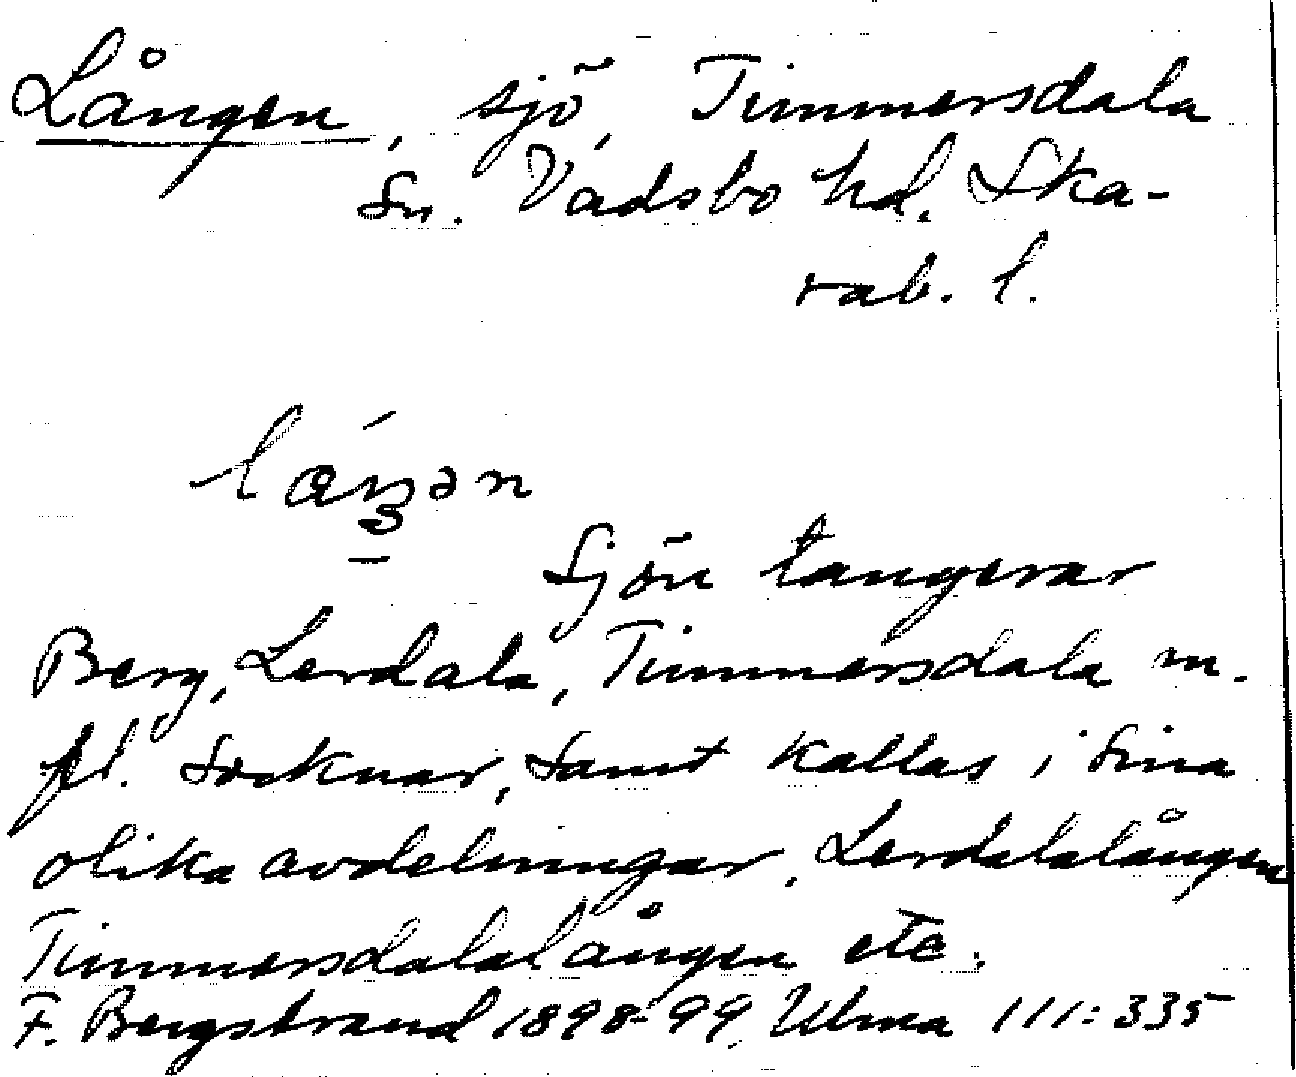 Lången, sjö, Timmersdala
sn. Vadsbo hd. Ska-
rab. l.
Sjön tangerar
Berg, Lerdala, Timmersdala m.
fl. socknar, samt kallas i sina
olika avdelningar, Lerdalalången
Timmersdalalången etc.
F. Bergstrand 1898-99, Ulma 111:335